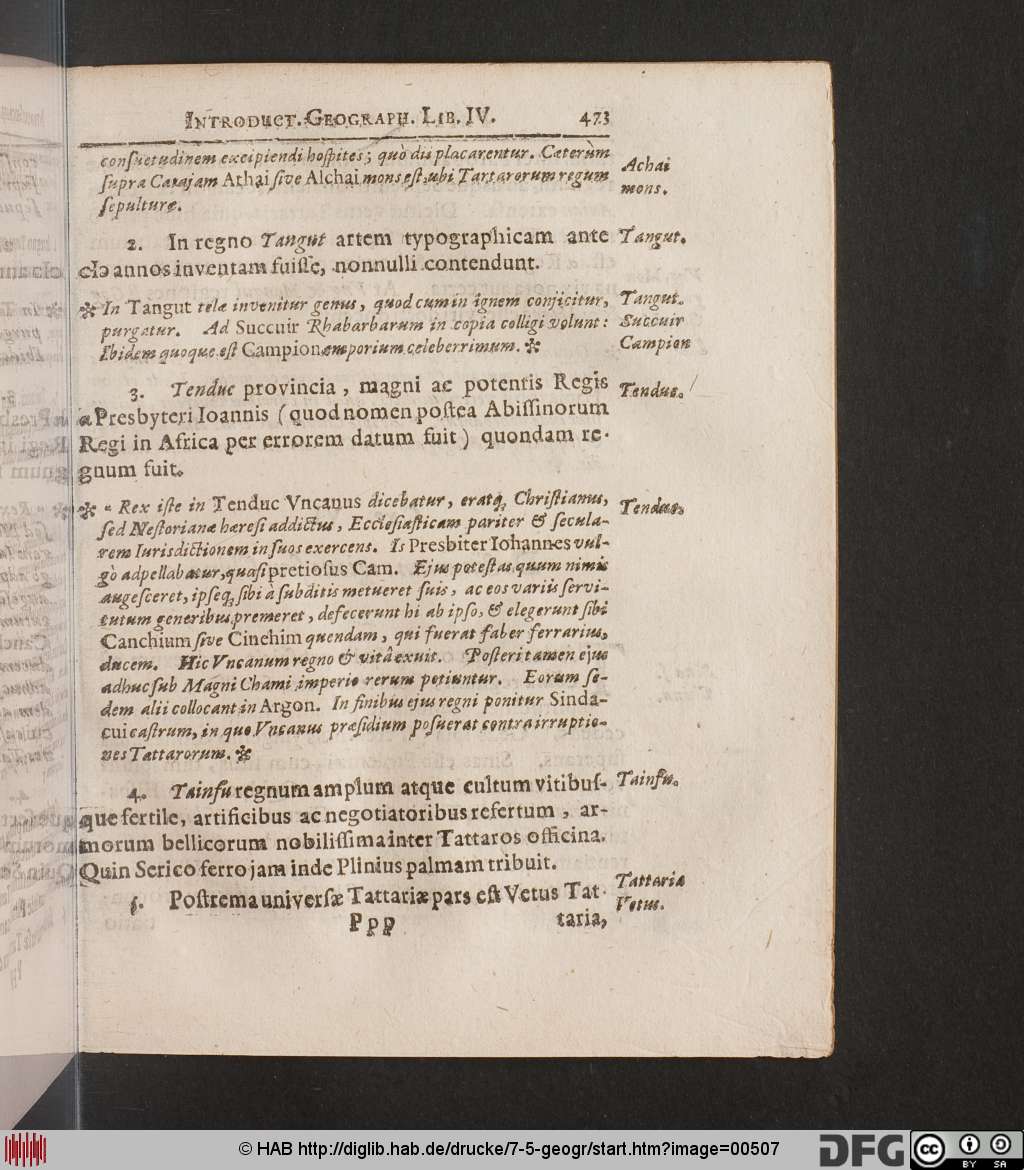 INTRODUCT. GEOGRAPH. LIB. IV. 473
conſuetudinem excipiendi hoſpites; quò dii placarentur. Cæterùm
ſupra Carajam Athai ſive Alchai mons eſt, ubi Tartarorum regum
ſepulturæ.
Achai
mons.
2. In regno Tangut artem typographicam ante
cIↃ annos inventam fuiſſe, nonnulli contendunt.
Tangut.
✼ In Tangut telæ invenitur genus, quod cum in ignem conjicitur,
purgatur. Ad Succuir Rhabarbarum in copia colligi volunt:
Ibidem quoque eſt Campion emporium celeberrimum. ✼
Tangut.
Succuir
Campion
3. Tenduc provincia, magni ac potentis Regis
a Presbyteri Ioannis (quod nomen poſtea Abiſſinorum
Regi in Africa per errorem datum fuit) quondam re-
gnum fuit.
Tenduc.
✼ a Rex iſte in Tenduc Vncanus dicebatur, eratq́; Chriſtianus,
ſed Neſtorianæ hæreſi addictus, Eccleſiaſticam pariter & ſecula-
rem Iurisdictionem in ſuos exercens. Is Presbiter Iohannes vul-
gò adpellabatur, quaſi pretioſus Cam. Ejus poteſtas quum nimis
augeſceret, ipſeq́; ſibi à ſubditis metueret ſuis, ac eos variis ſervi-
tutum generibus premeret, defecerunt hi ab ipſo, & elegerunt ſibi
Canchium ſive Cinchim quendam, qui fuerat faber ferrarius,
ducem. Hic Vncanum regno & vitâ exuit. Poſteri tamen ejus
adhuc ſub Magni Chami imperio rerum potiuntur. Eorum ſe-
dem alii collocant in Argon. In finibus ejus regni ponitur Sinda-
cui caſtrum, in quo Vncanus præſidium poſuerat contra irruptio-
nes Tattarorum. ✼
Tenduc.
4. Tainfu regnum amplum atque cultum vitibuſ-
que fertile, artificibus ac negotiatoribus refertum, ar-
morum bellicorum nobiliſſima inter Tattaros officina.
Quin Serico ferro jam inde Plinius palmam tribuit.
Tainfu.
5. Poſtrema univerſæ Tattariæ pars eſt Vetus Tat-
Tattaria
Vetus.
Ppp taria,
© HAB http://diglib.hab.de/drucke/7-5-geogr/start.htm?image=00507
DFG
cc BY SA